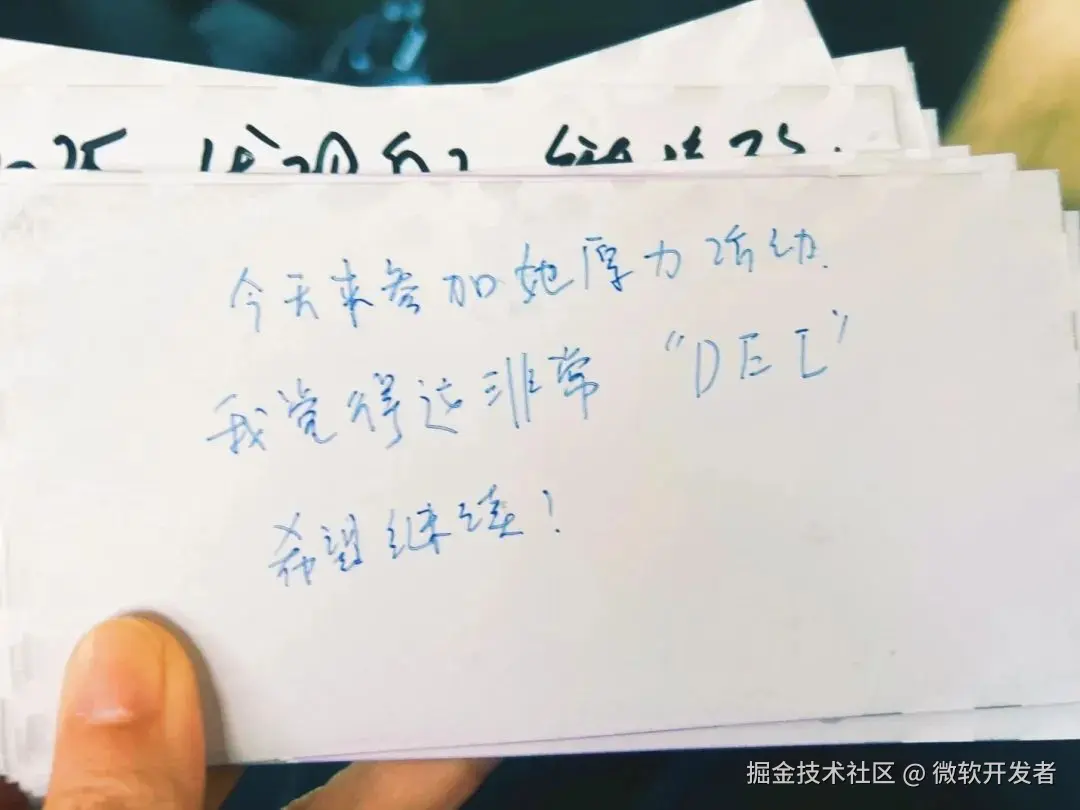 今天来参加她厚力活动.
我觉得这非常“DEI”
希望继续!
掘金技术社区 @ 微软开发者